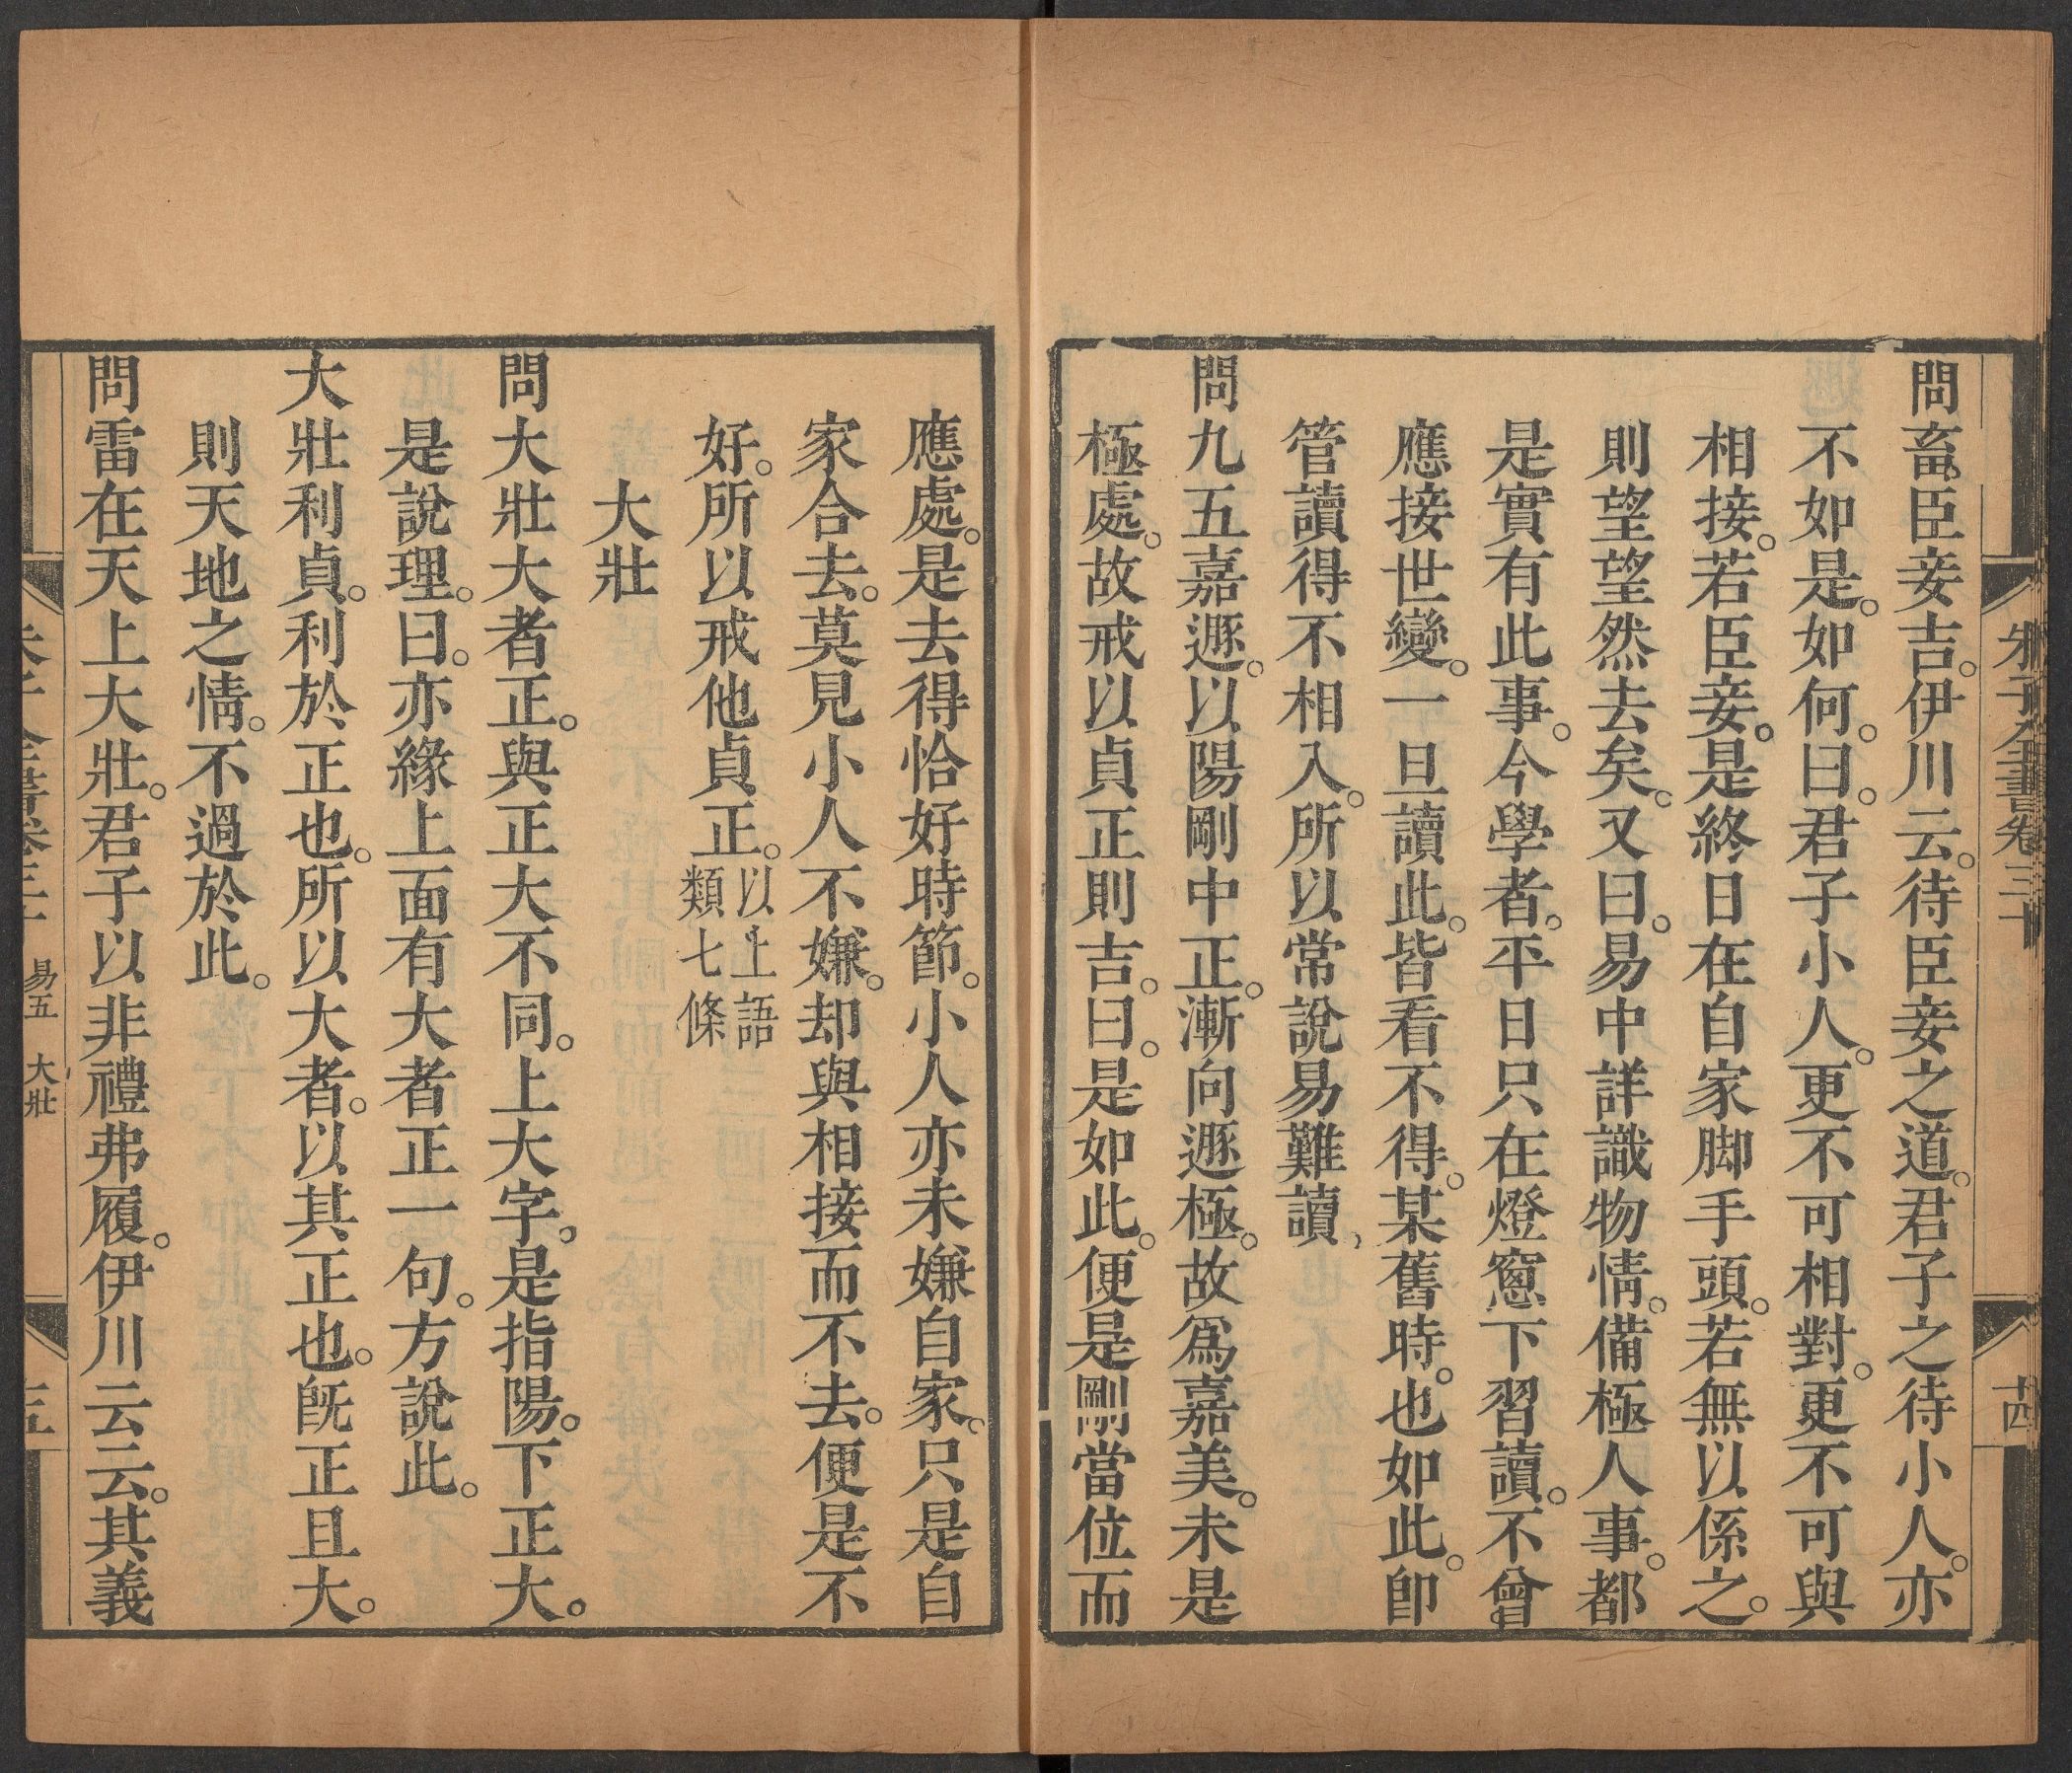 朱子全書卷三十
十四
問畜臣妾吉。伊川云。待臣妾之道。君子之待小人。亦
不如是。如何。曰。君子小人。更不可相對。更不可與
相接。若臣妾。是終日在自家脚手頭。若無以係之。
則望望然去矣。又曰。易中詳識物情。備極人事。都
是實有此事。今學者。平日只在燈窻下習讀。不曾
應接世變。一旦讀此。皆看不得。某舊時。也如此。卽
管讀得不相入。所以常說易難讀、
問九五嘉遯。以陽剛中正。漸向遯極。故爲嘉美。未是
極處。故戒以貞正則吉。曰。是如此。便是剛當位而
應處。是去得恰好時節。小人亦未嫌自家。只是自
家合去。莫見小人不嫌。却與相接而不去。便是不
好。所以戒他貞正。以上語
類七條
大壯
問大壯大者正。與正大不同。上大字。是指陽。下正大。
是說理。曰。亦緣上面有大者正一句。方說此。
大壯利貞。利於正也。所以大者。以其正也。旣正且大。
則天地之情。不過於此。
問雷在天上大壯。君子以非禮弗履。伊川云云。其義
易五 大壯